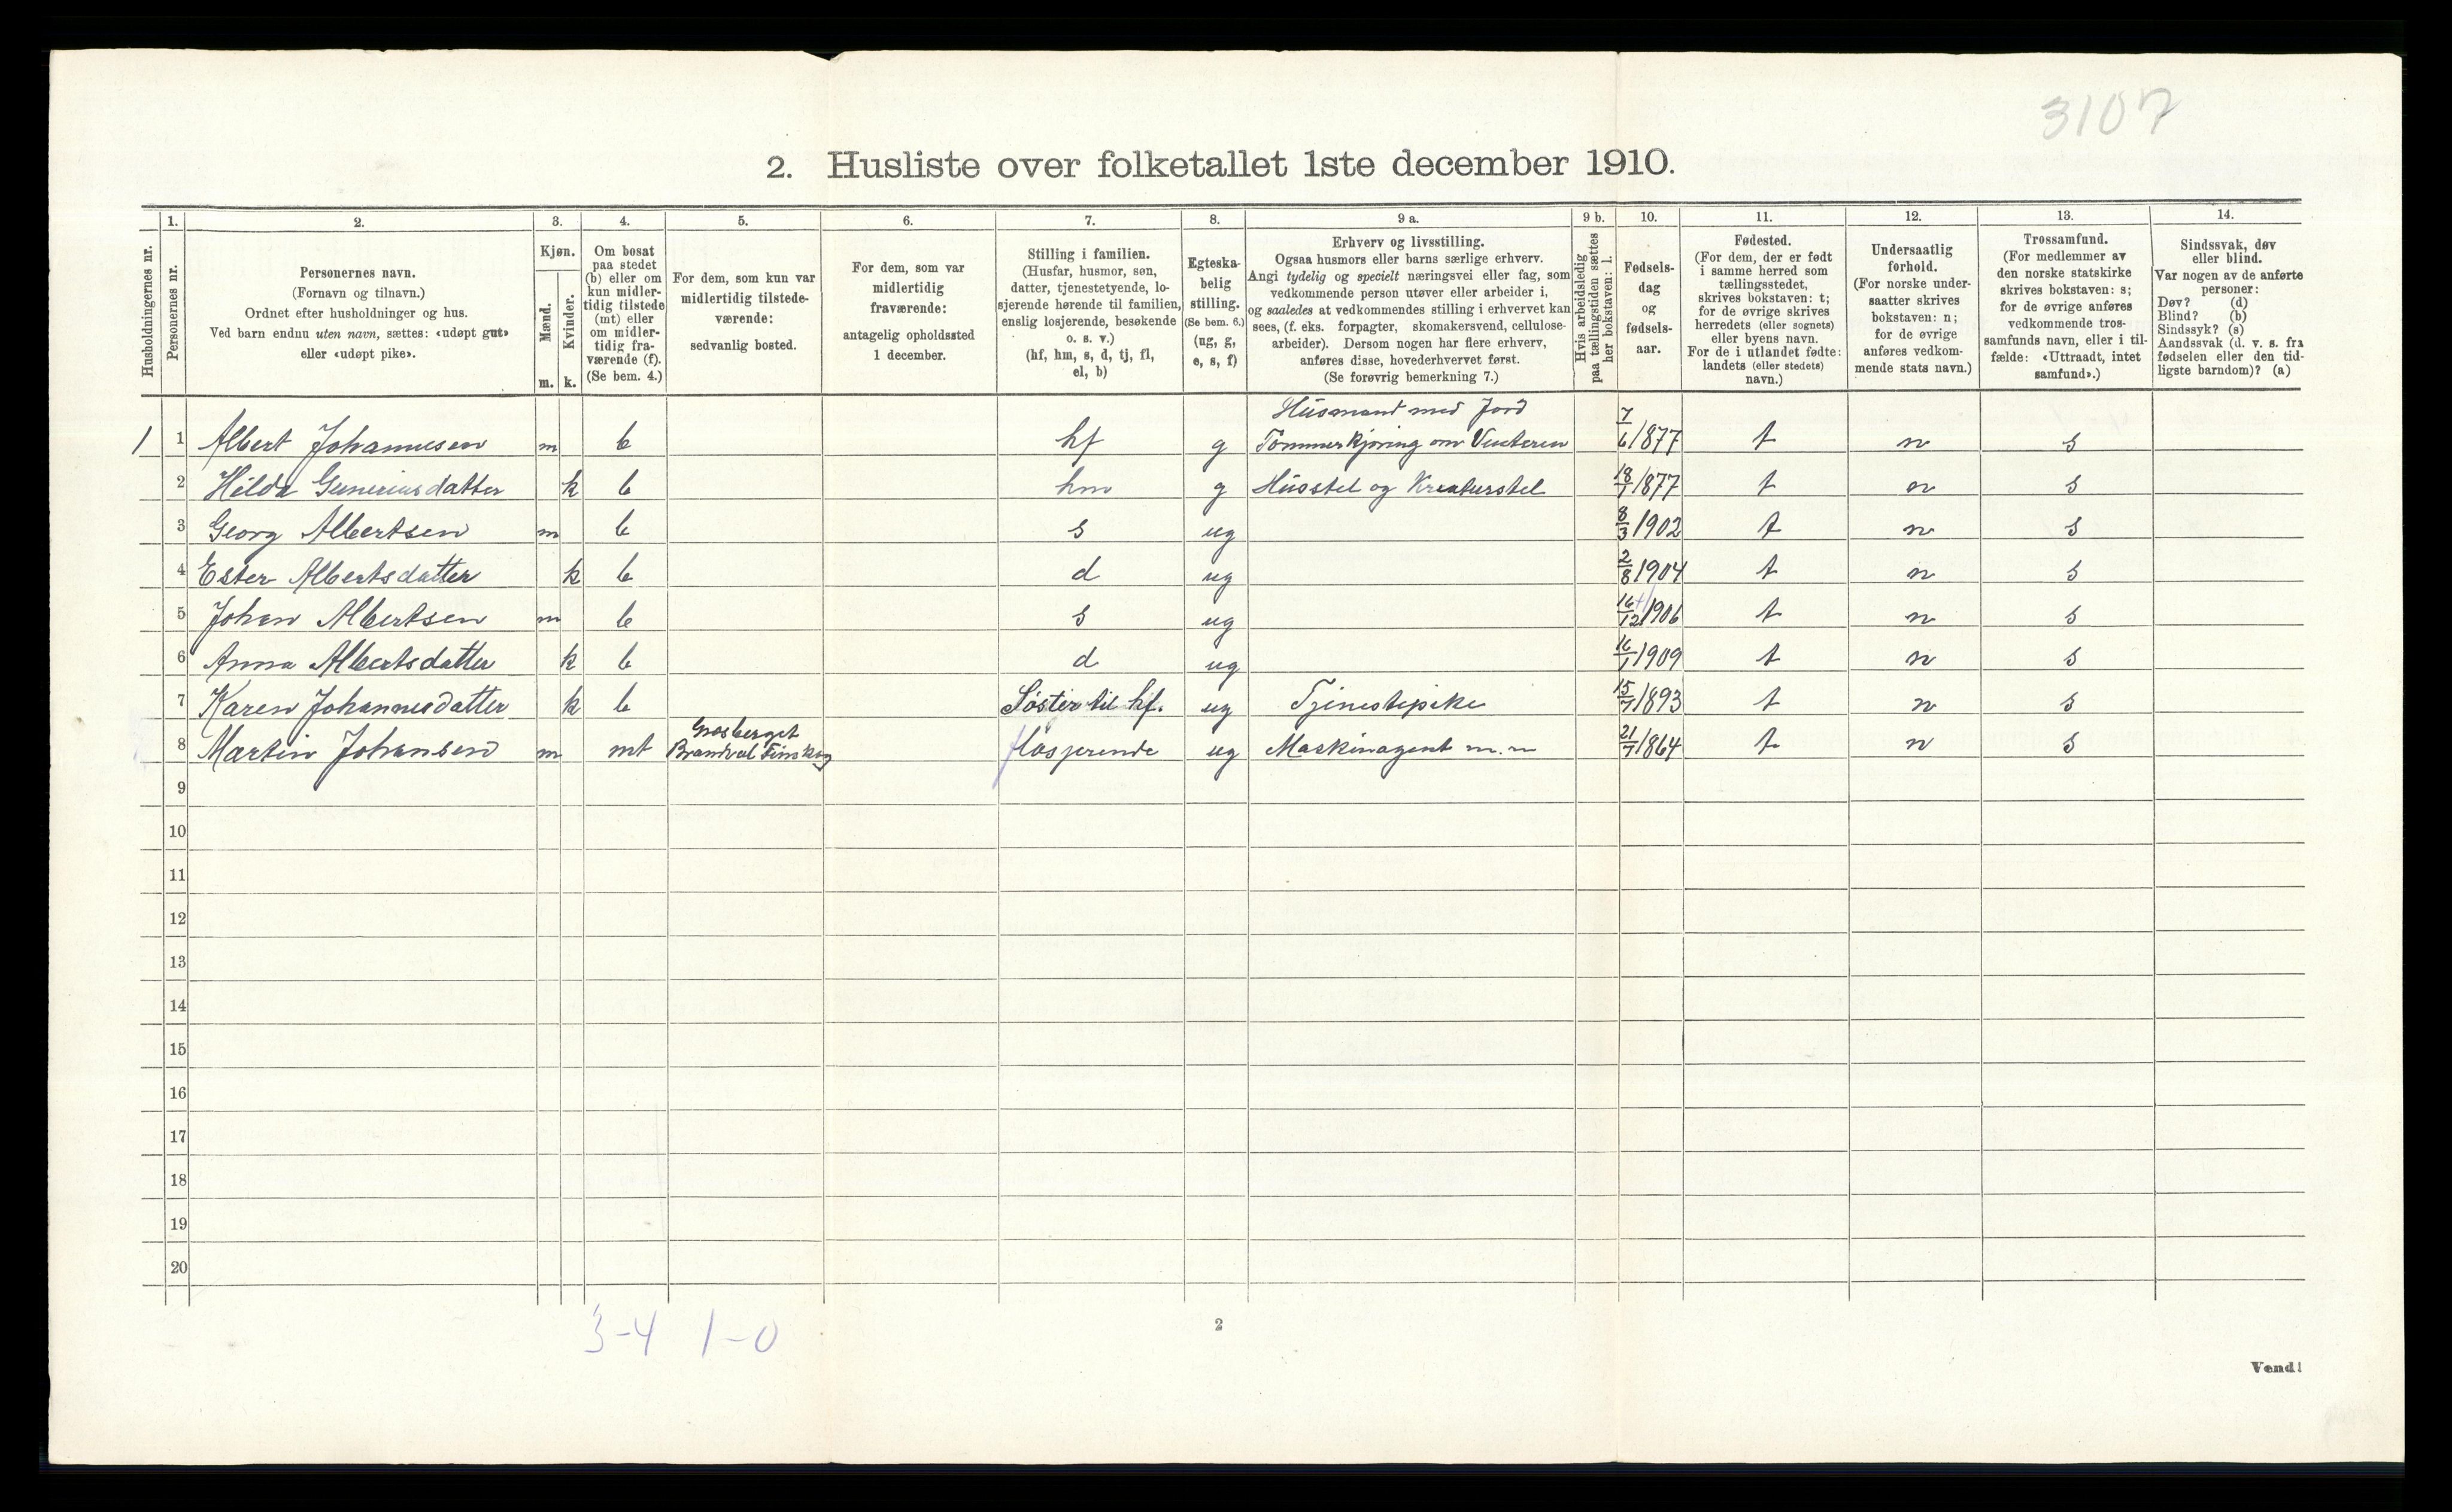 3107
2. Husliste over folketallet 1ste december 1910.
Husholdningernes nr.
1.
Personernes nr.
2.
Personernes navn.
(Fornavn og tilnavn.)
Ordnet efter husholdninger og hus.
Ved barn endnu uten navn, sættes: «udøpt gut»
eller «udøpt pike».
3.
Kjøn.
Mænd.
Kvinder.
m. k.
4.
Om bosat
paa stedet
(b) eller om
kun midler-
tidig tilstede
(mt) eller
om midler-
tidig fra-
værende (f).
(Se bem. 4.)
5.
For dem, som kun var
midlertidig tilstede-
værende:
sedvanlig bosted.
6.
For dem, som var
midlertidig
fraværende:
antagelig opholdssted
1 december.
7.
Stilling i familien.
(Husfar, husmor, søn,
datter, tjenestetyende, lo-
sjerende hørende til familien,
enslig losjerende, besøkende
o. s. v.)
(hf, hm, s, d, tj, fl,
el, b)
8.
Egteska-
belig
stilling.
(Se bem. 6.)
(ug, g,
e, s, f)
9 a.
Erhverv og livsstilling.
Ogsaa husmors eller barns særlige erhverv.
Angi tydelig og specielt næringsvei eller fag, som
vedkommende person utøver eller arbeider i,
og saaledes at vedkommendes stilling i erhvervet kan
sees, (f. eks. forpagter, skomakersvend, cellulose-
arbeider). Dersom nogen har flere erhverv,
anføres disse, hovederhvervet først.
(Se forøvrig bemerkning 7.)
9 b.
Hvis arbeidsledig
paa tællingstiden sættes
her bokstaven: l.
10.
Fødsels-
dag
og
fødsels-
aar.
11.
Fødested.
(For dem, der er født
i samme herred som
tællingsstedet,
skrives bokstaven: t;
for de øvrige skrives
herredets (eller sognets)
eller byens navn.
For de i utlandet fødte:
landets (eller stedets)
navn.)
12.
Undersaatlig
forhold.
(For norske under-
saatter skrives
bokstaven: n;
for de øvrige
anføres vedkom-
mende stats navn.)
13.
Trossamfund.
(For medlemmer av
den norske statskirke
skrives bokstaven: s;
for de øvrige anføres
vedkommende tros-
samfunds navn, eller i til-
fælde: «Uttraadt, intet
samfund».)
14.
Sindssvak, døv
eller blind.
Var nogen av de anførte
personer:
Døv? (d)
Blind? (b)
Sindssyk? (s)
Aandssvak (d. v. s. fra
fødselen eller den tid-
ligste barndom)? (a)
Husmand med Jord
1 1 Albert Johannesen m b hf g Tømmerkjøring om Vinteren 7/6 1877 t n s
2 Hilda Guneriusdatter k b hm g Husstel og Kreaturstel 18/1 1877 t n s
3 Georg Albertsen m b s ug 8/3 1902 t n s
4 Ester Albertsdatter k b d ug 2/8 1904 t n s
5 Johan Albertsen m b s ug 16/12 1906 t n s
6 Anna Albertsdatter k b d ug 16/1 1909 t n s
7 Karen Johannesdatter k b Søster til hf. ug Tjenestepike 15/7 1893 t n s
Grasberget
8 Martin Johansen m mt Brandval Finskog flosjerende ug Maskinagent m.m 21/7 1864 t n s
9
10
11
12
13
14
15
16
17
18
19
20
3-4 1-0
2
Vend!